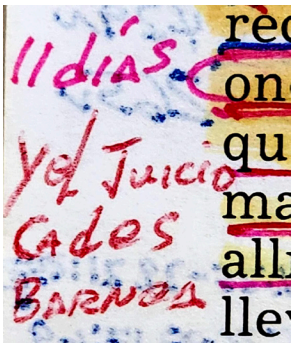 11 días
Y el Juicio
Cades
BARNEA
rec
on
qu
ma
all
lle